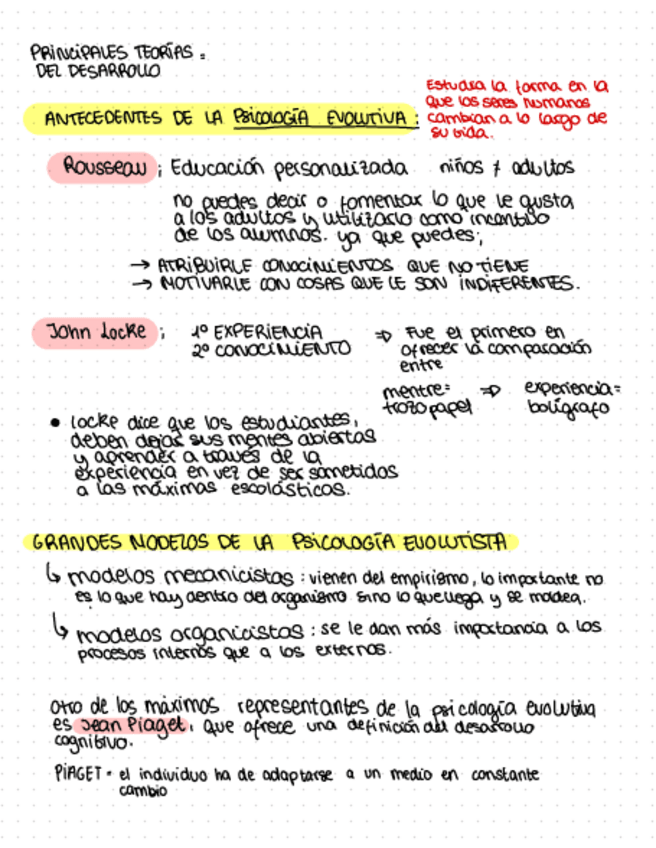 PRINCIPALES TEORÍAS :
DEL DESARROLLO
Estudia la forma en la
que los seres humanos
cambian a lo largo de
su vida.
ANTECEDENTES DE LA PSICOLOGÍA EVOLUTIVA :
Rousseau ; Educación personalizada niños ≠ adultos
no puedes decir o fomentar lo que le gusta
a los adultos y utilizarlo como incentivo
de los alumnos. ya que puedes;
→ ATRIBUIRLE CONOCIMIENTOS QUE NO TIENE
→ MOTIVARLE CON COSAS QUE LE SON INDIFERENTES.
John Locke ; 1º EXPERIENCIA ⇒ Fue el primero en
2º CONOCIMIENTO ofrecer la comparación
entre
mentre= ⇒ experiencia=
trozo papel bolígrafo
• Locke dice que los estudiantes,
deben dejar sus mentes abiertas
y aprender a través de la
experiencia en vez de ser sometidos
a las máximas escolásticos.
GRANDES MODELOS DE LA PSICOLOGÍA EVOLUTISTA
↳ modelos mecanicistas : vienen del empirismo, lo importante no
es lo que hay dentro del organismo sino lo que llega y se moldea.
↳ modelos organicistas : se le dan más importancia a los
procesos internos que a los externos.
Otro de los máximos representantes de la psicología evolutiva
es Jean Piaget, que ofrece una definición del desarrollo
cognitivo.
PIAGET = el individuo ha de adaptarse a un medio en constante
cambio